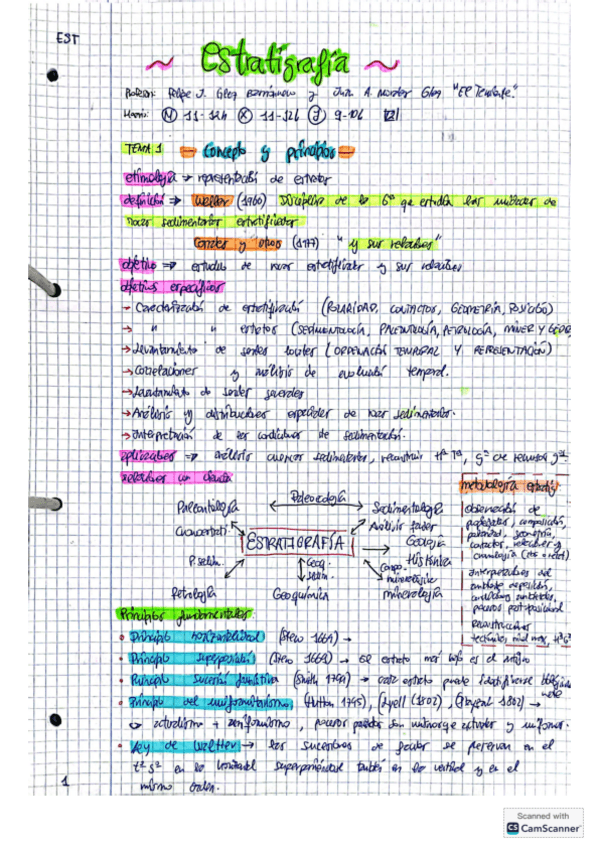 EST
~ Estratigrafía ~
Felipe J. Glez y A. "El Teniente"
11-12h 11-12h 9-10h
TEMA 1 - Concepto y principios -
etimología → representación de estratos
definición ⇒ Weller (1960) Disciplina de la Gª que estudia las unidades de
rocas sedimentarias estratificadas
Corrales y otros (1977) "y sus relaciones"
objetivo ⇒ estudio de rocas estratificadas y sus relaciones
objetivos específicos
→ Caracterización de estratificación (POLARIDAD, CONTACTOS, GEOMETRÍA, POSICIÓN)
→ " " estratos (SEDIMENTOLOGÍA, PALEONTOLOGÍA, PETROLOGÍA, MINER Y GEOQ
→ Levantamiento de series locales (ORDENACIÓN TEMPORAL Y REPRESENTACIÓN)
→ Correlaciones y análisis de evolución temporal.
→ Levantamiento de series generales
→ Análisis y distribuciones espaciales de rocas sedimentarias.
→ Interpretación de las condiciones de sedimentación.
aplicaciones ⇒ análisis cuencas sedimentarias, reconstruir Hª Tª,
relaciones con ciencia
metodología estratig
Paleontología
Paleoecología
Sedimentología
Análisis facies
P. sedim.
ESTRATIGRAFÍA
Geología
Histórica
Geoq.
sedim.
Comp.
mineralógica
Petrología
Geoquímica
mineralogía
observación de
propiedades, composición,
polaridad, geometría,
contactos, relaciones y
cronología (rtva o abst)
interpretación del
ambiente deposición,
condiciones ambientales,
procesos postposicional
reconstrucciones
tectónicas, nivel mar,
Principios fundamentales:
• Principio horizontalidad (Steno 1669) →
• Principio superposición (Steno 1669) → el estrato más bajo es el antiguo
• Principio sucesión faunística (Smith 1799) → cada estrato puede identificarse
• Principio del uniformitarismo, (Hutton 1795), (Lyell (1802), (Playfair 1802) →
↪ actualismo + uniformismo, procesos pasados son mismos que actuales y uniformes.
• Ley de Walther → las sucesiones de facies se observan en el
tº sº en la horizontal superponiéndose también en la vertical y en el
mismo orden.
1
Scanned with
CS CamScanner